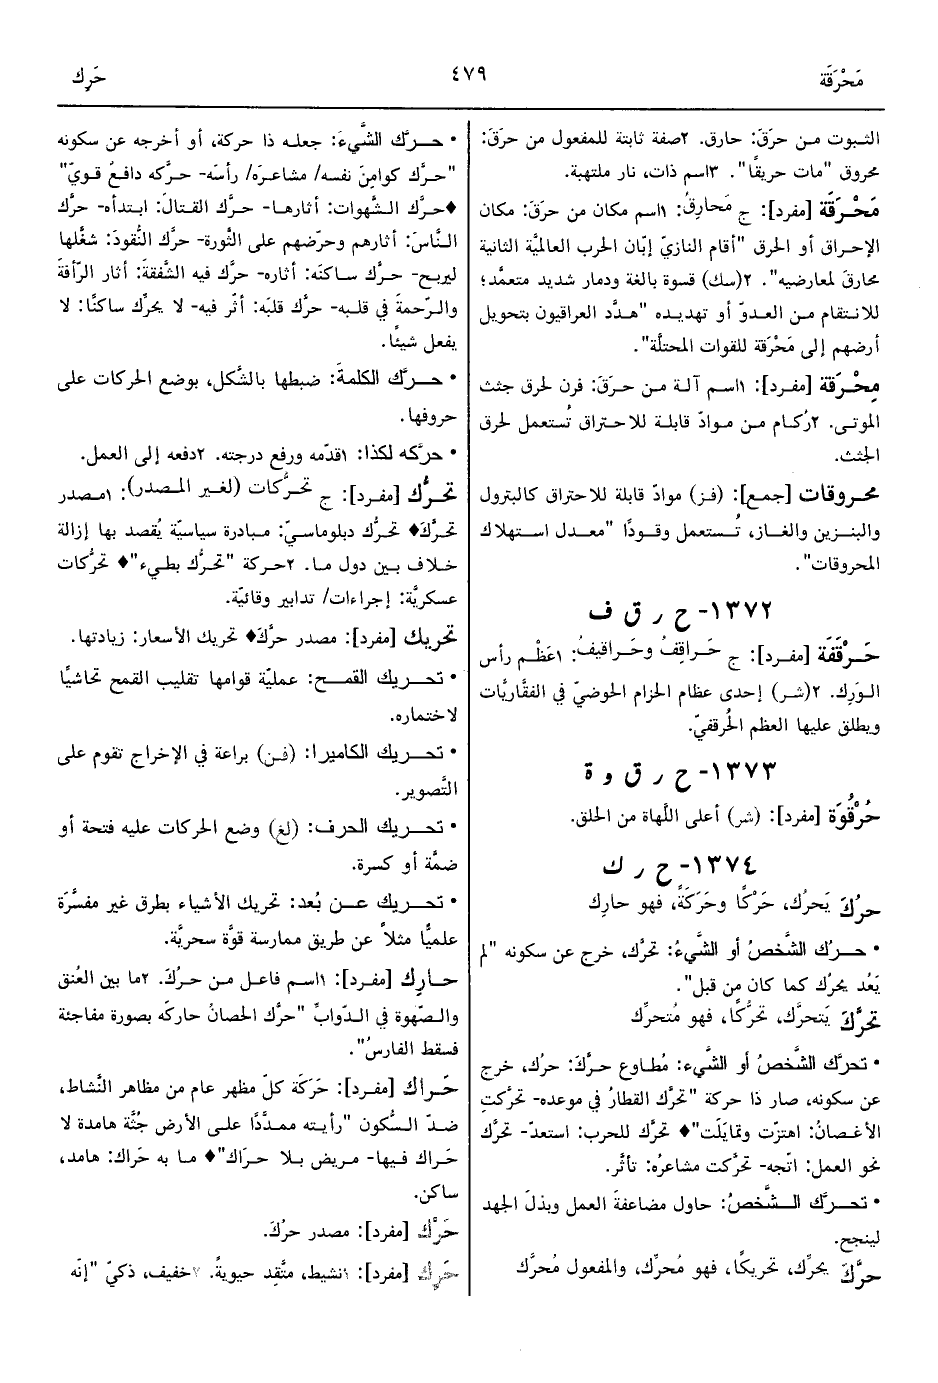 مَحْرَقَة
٤٧٩
حَرِك
الثبوت من حرَقَ: حارق. ٢صفة ثابتة للمفعول من حرَقَ:
محروق "مات حريقًا". ٣اسم ذات، نار ملتهبة.
مَحْرَقَة [مفرد]: ج مَحارِقُ: ١اسم مكان من حرَقَ: مكان
الإحراق أو الحرق "أقام النازيّ إبّان الحرب العالميَّة الثانية
محارقَ لمعارضيه". ٢(سك) قسوة بالغة ودمار شديد متعمَّد؛
للانتقام من العدوّ أو تهديده "هدَّد العراقيون بتحويل
أرضهم إلى مَحْرَقة للقوات المحتلَّة".
مِحْرَقة [مفرد]: ١اسم آلة من حرَقَ: فرن لحرق جثث
الموتى. ٢رُكام من موادّ قابلة للاحتراق تُستعمل لحرق
الجثث.
محروقات [جمع]: (فز) موادّ قابلة للاحتراق كالبترول
والبنزين والغاز، تُستعمل وقودًا "معدل استهلاك
المحروقات".
١٣٧٢- ح ر ق ف
حَرْقَفَة [مفرد]: ج حَراقِفُ وحَراقيفُ: ١عَظْم رأس
الوَرِك. ٢(شر) إحدى عظام الحزام الحوضيّ في الفقَّاريَّات
ويطلق عليها العظم الحُرقفيّ.
١٣٧٣- ح ر ق و ة
حُرْقُوَة [مفرد]: (شر) أعلى اللهاة من الحلق.
١٣٧٤- ح ر ك
حرُكَ يَحرُك، حَرْكًا وحَرَكَةً، فهو حارِك
• حرُك الشَّخصُ أو الشَّيءُ: تحرَّك، خرج عن سكونه "لم
يَعُد يحرُك كما كان من قبل".
تحرَّكَ يَتحرَّك، تحرُّكًا، فهو مُتحرِّك
• تحرَّك الشَّخصُ أو الشَّيءُ: مُطاوع حرَّكَ: حرُك، خرج
عن سكونه، صار ذا حركة "تحرَّك القطارُ في موعده- تحرَّكتِ
الأغصانُ: اهتزّت وتمايَلَت" ♦ تحرَّك للحرب: استعدّ- تحرَّك
نحو العمل: اتّجه- تحرَّكت مشاعرُه: تأثَّر.
• تحرَّك الشَّخصُ: حاول مضاعفةَ العمل وبذلَ الجهد
لينجح.
حرَّكَ يحرِّك، تحريكًا، فهو مُحرِّك، والمفعول مُحرَّك
• حرَّك الشَّيءَ: جعله ذا حركة، أو أخرجه عن سكونه
"حرَّك كوامِنَ نفسه/ مشاعرَه/ رأسَه- حركّه دافعٌ قويّ"
♦ حرَّك الشَّهوات: أثارها- حرَّك القتالَ: ابتدأه- حرَّك
النَّاسَ: أثارهم وحرّضهم على الثَّورة- حرَّك النُّقودَ: شغَّلها
ليربح- حرَّك ساكنَه: أثاره- حرَّك فيه الشَّفقةَ: أثار الرّأفةَ
والرّحمةَ في قلبه- حرّك قلبَه: أثّر فيه- لا يحرِّك ساكنًا: لا
يفعل شيئًا.
• حرَّك الكلمةَ: ضبطها بالشَّكل، بوضع الحركات على
حروفها.
• حركّه لكذا: ١قدّمه ورفع درجته. ٢دفعه إلى العمل.
تحرُّك [مفرد]: ج تحرُّكات (لغير المصدر): ١مصدر
تحرَّكَ ♦ تحرُّك دبلوماسيّ: مبادرة سياسيّة يُقصد بها إزالة
خلاف بين دول ما. ٢حركة "تحرُّك بطيء" ♦ تحرُّكات
عسكريَّة: إجراءات/ تدابير وقائيّة.
تحريك [مفرد]: مصدر حرَّكَ ♦ تحريك الأسعار: زيادتها.
• تحريك القمح: عمليّة قوامها تقليب القمح تحاشيًا
لاختماره.
• تحريك الكاميرا: (فن) براعة في الإخراج تقوم على
التَّصوير.
• تحريك الحرف: (لغ) وضع الحركات عليه فتحة أو
ضمَّة أو كسرة.
• تحريك عن بُعد: تحريك الأشياء بطرق غير مفسَّرة
علميًّا مثلاً عن طريق ممارسة قوَّة سحريَّة.
حارِك [مفرد]: ١اسم فاعل من حرُكَ. ٢ما بين العُنق
والصّهوة في الدّوابِّ "حرَّك الحصانُ حاركَه بصورة مفاجئة
فسقط الفارسُ".
حَراك [مفرد]: حَرَكَة كلّ مظهر عام من مظاهر النَّشاط،
ضدّ السُّكون "رأيته ممدَّدًا على الأرض جُثَّة هامدة لا
حَراك فيها- مريض بلا حرَاك" ♦ ما به حَراك: هامد،
ساكن.
حَرْك [مفرد]: مصدر حرُكَ.
حَرِك [مفرد]: ١نشيط، متَّقِد حيويةً. ٢خفيف، ذكيّ "إنّه